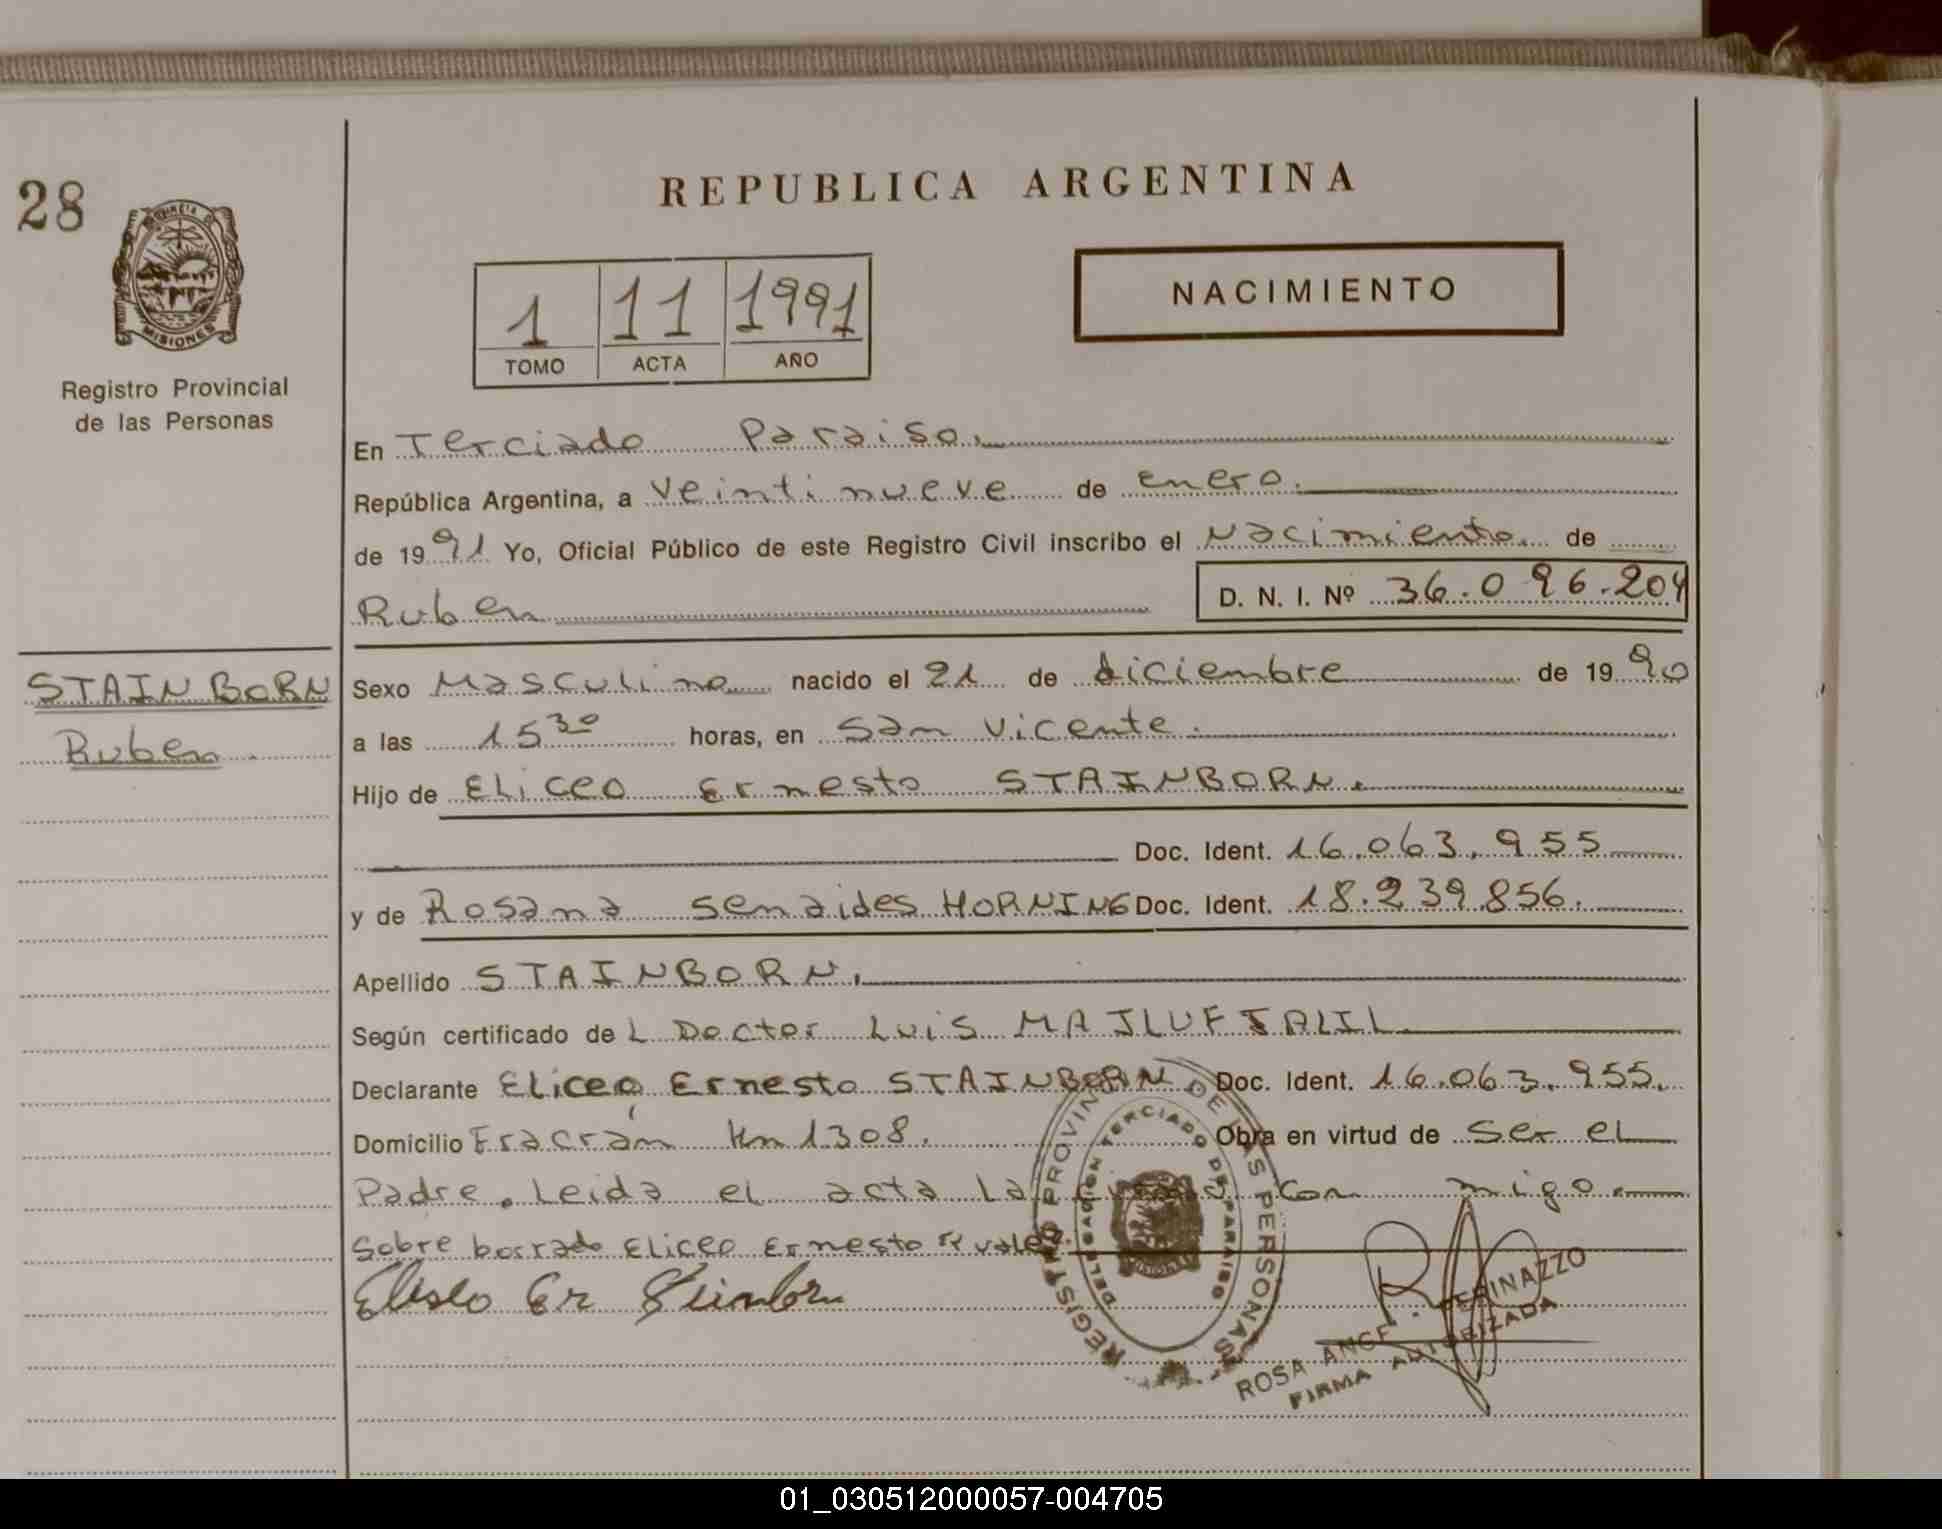 28
REPUBLICA ARGENTINA
PROVINCIA DE
MISIONES
Registro Provincial
de las Personas
1 11 1991
TOMO ACTA AÑO
NACIMIENTO
En Terciado Paraiso.
República Argentina, a veintinueve de enero.
de 1991 Yo, Oficial Público de este Registro Civil inscribo el Nacimiento. de
Ruben D. N. I. Nº 36.096.204
STAINBORN
Ruben.
Sexo Masculino nacido el 21 de diciembre de 1990
a las 15 30 horas, en San Vicente.
Hijo de Eliceo Ernesto STAINBORN.
Doc. Ident. 16.063.955
y de Rosana Senaides HORNING Doc. Ident. 18.239.856.
Apellido STAINBORN.
Según certificado de L Doctor Luis MAJLUF JALIL
Declarante Eliceo Ernesto STAINBORN. Doc. Ident. 16.063.955.
Domicilio Fracrán Km 1308. Obra en virtud de ser el
Padre. Leida el acta la con migo.
Sobre borrado Eliceo Ernesto vale.
REGISTRO PROVINCIAL DE LAS PERSONAS
DELEGACION TERCIADO DE PARAISO
ROSA PERINAZZO
FIRMA AUTORIZADA
01_030512000057-004705